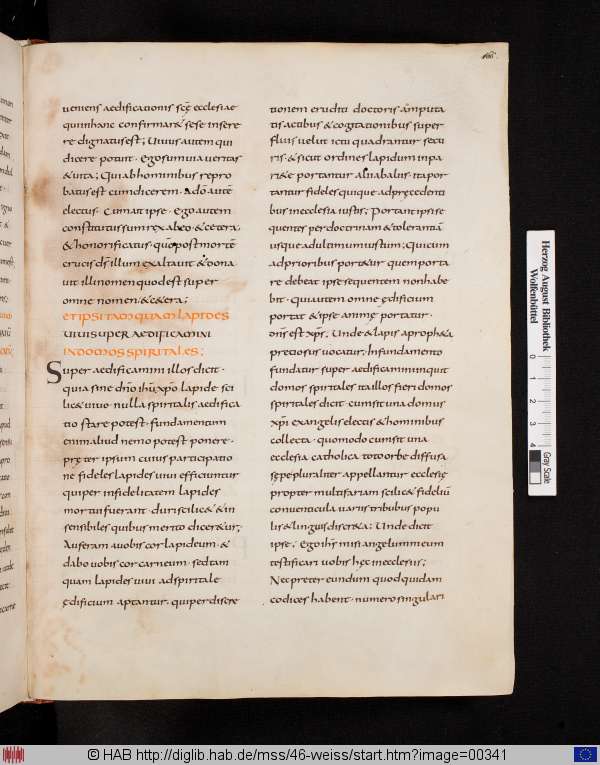 ueniens aedificationis scę ecclesiae
quiinhanc confirmar& sese insere
re dignatus est; Uiuus autem qui
dicere potuit · Ego sum uia ueritas
& uita; Qui ab hominibus repro
batus est cum dicerem · a dō autē
electus · Cum ait ipse · Ego autem
constitutus sum rex ab eo & cetera ·
& honorificatus · quo post mortē
crucis ds illum exaltauit & dona
uit illi nomen quod est super
omne nomen & cetera;
ET IPSI TAMQUAM LAPIDES
UIUI SUPER AEDIFICAMINI
IN DOMOS SPIRITALES;
Super aedificamini illos dicit ·
quia sine dno ihu xpo lapide sci
lic& uiuo nulla spiritalis aedifica
tio stare potest · fundamentum
enim aliud nemo potest ponere ·
pręter ipsum cuius participatio
ne fideles lapides uiui efficiuntur
qui per infidelitatem lapides
mortui fuerant · duri scilic& & in
sensibiles quibus merito dicer&ur;
Auferam a uobis cor lapideum · &
dabo uobis cor carneum · sed tam
quam lapides uiui ad spiritale
ędificium aptantur · qui per discre
tionem eruditi doctoris amputa
tis actibus & cogitationibus super
fluis uelut ictu quadrantur secu
ris · & sicut ordines lapidum in pa
ri&e portantur alii ab aliis · ita por
tantur fideles quique a dpręcedenti
bus in ecclesia iustis; Portant ipsi se
quentes per doctrinam & tolerantiā
usque ad ultimum iustum; Qui cum
ad prioribus port&ur quem porta
re debeat ipse sequentem non habe
bit · qui autem omne ędificium
portat & ipse a nimę portatur ·
dns est xps; Unde & lapis a proph&a
preciosus uocatur; In fundamento
fundatur super aedificamini inquit
domos spiritales ita illos fieri domos
spiritales dicit · cum sit una domus
xpi ex angelis electis & hominibus
collecta · quomodo cum sit una
ecclesia catholica toto orbe diffusa
sępe pluraliter appellantur ecclesię
propter multifariam scilic& fideliū
conuenticula uariis tribubus popu
lis & linguis discr&a; Unde dicit
ipse; Ego ihs misi angelum meum
testificari uobis hęc in ecclesiis;
Nec preter eundum quod quidam
codices habent · numero singulari
Herzog August Bibliothek
Wolfenbüttel
0 1 2 3 4
Gray Scale
© HAB http://diglib.hab.de/mss/46-weiss/start.htm?image=00341